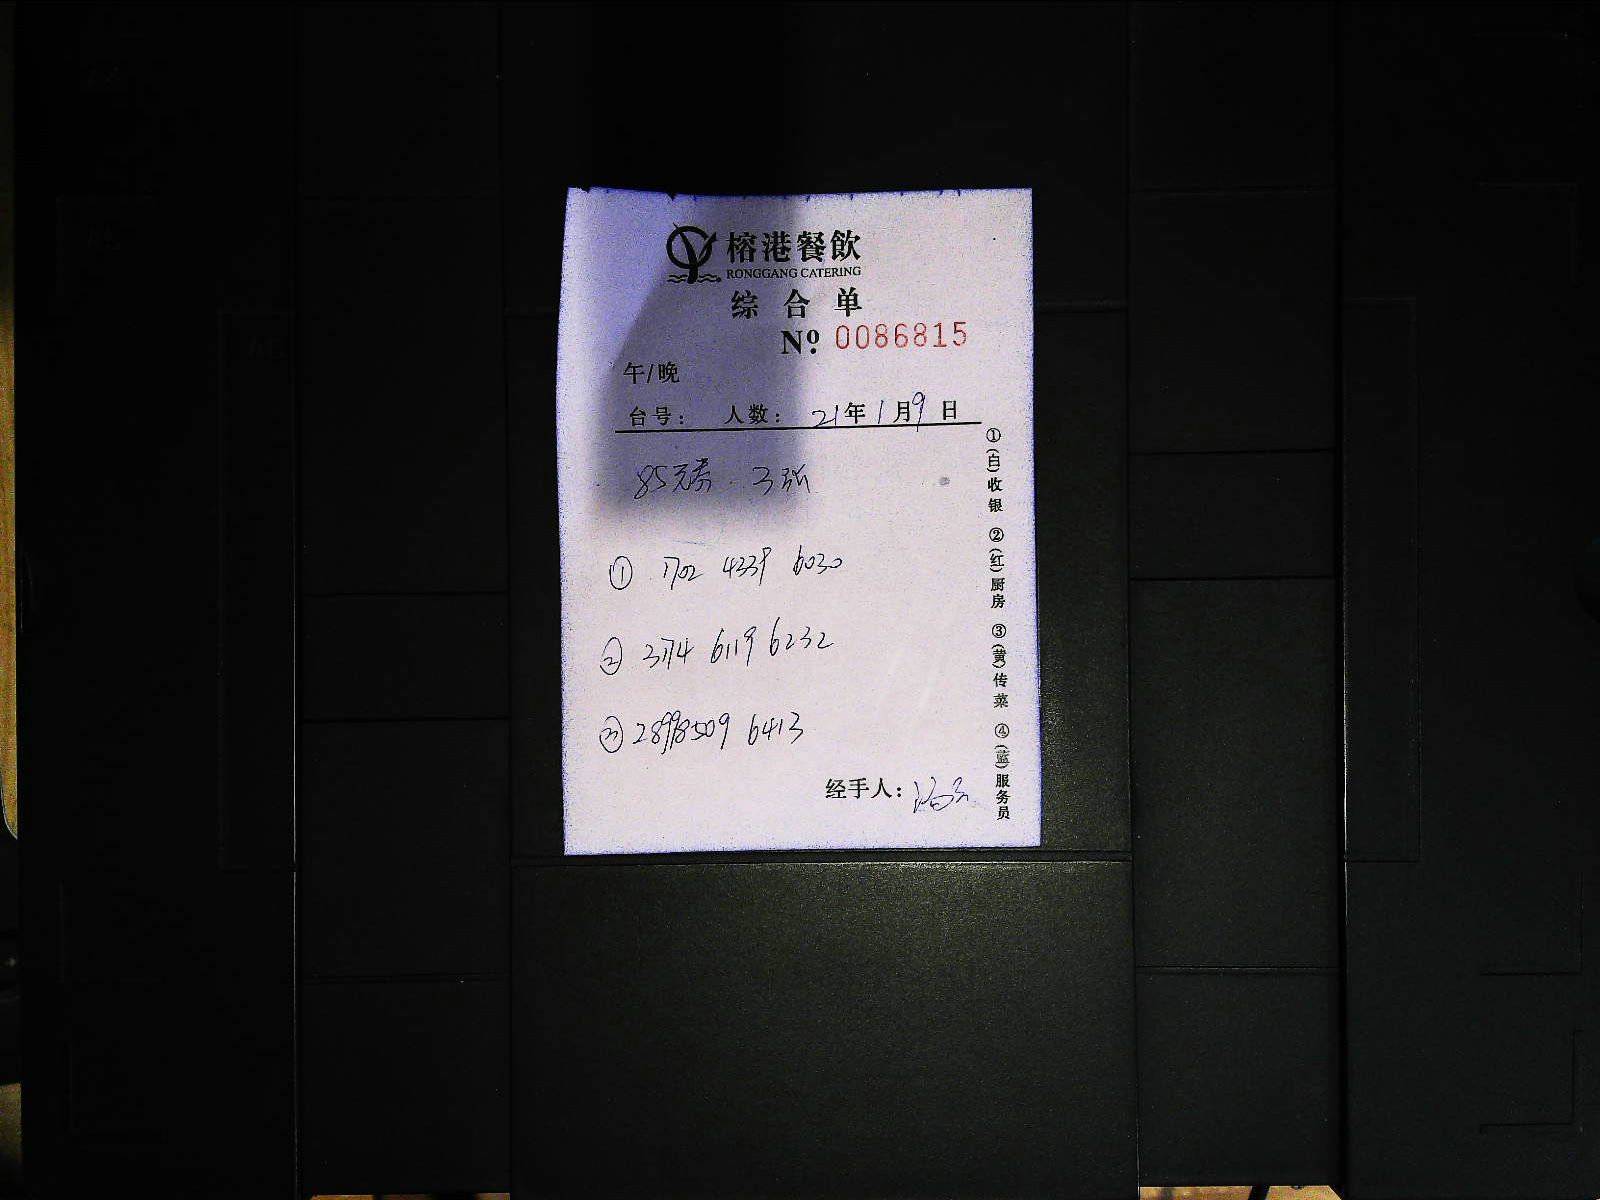 榕港餐飲
RONGGANG CATERING
综合单
Nº: 0086815
午/晚
台号: 人数: 21年1月9日
85元券 3张
① 1702 4339 6030
② 3714 6119 6232
③ 28998509 6413
经手人:
①(白)收银 ②(红)厨房 ③(黄)传菜 ④(蓝)服务员